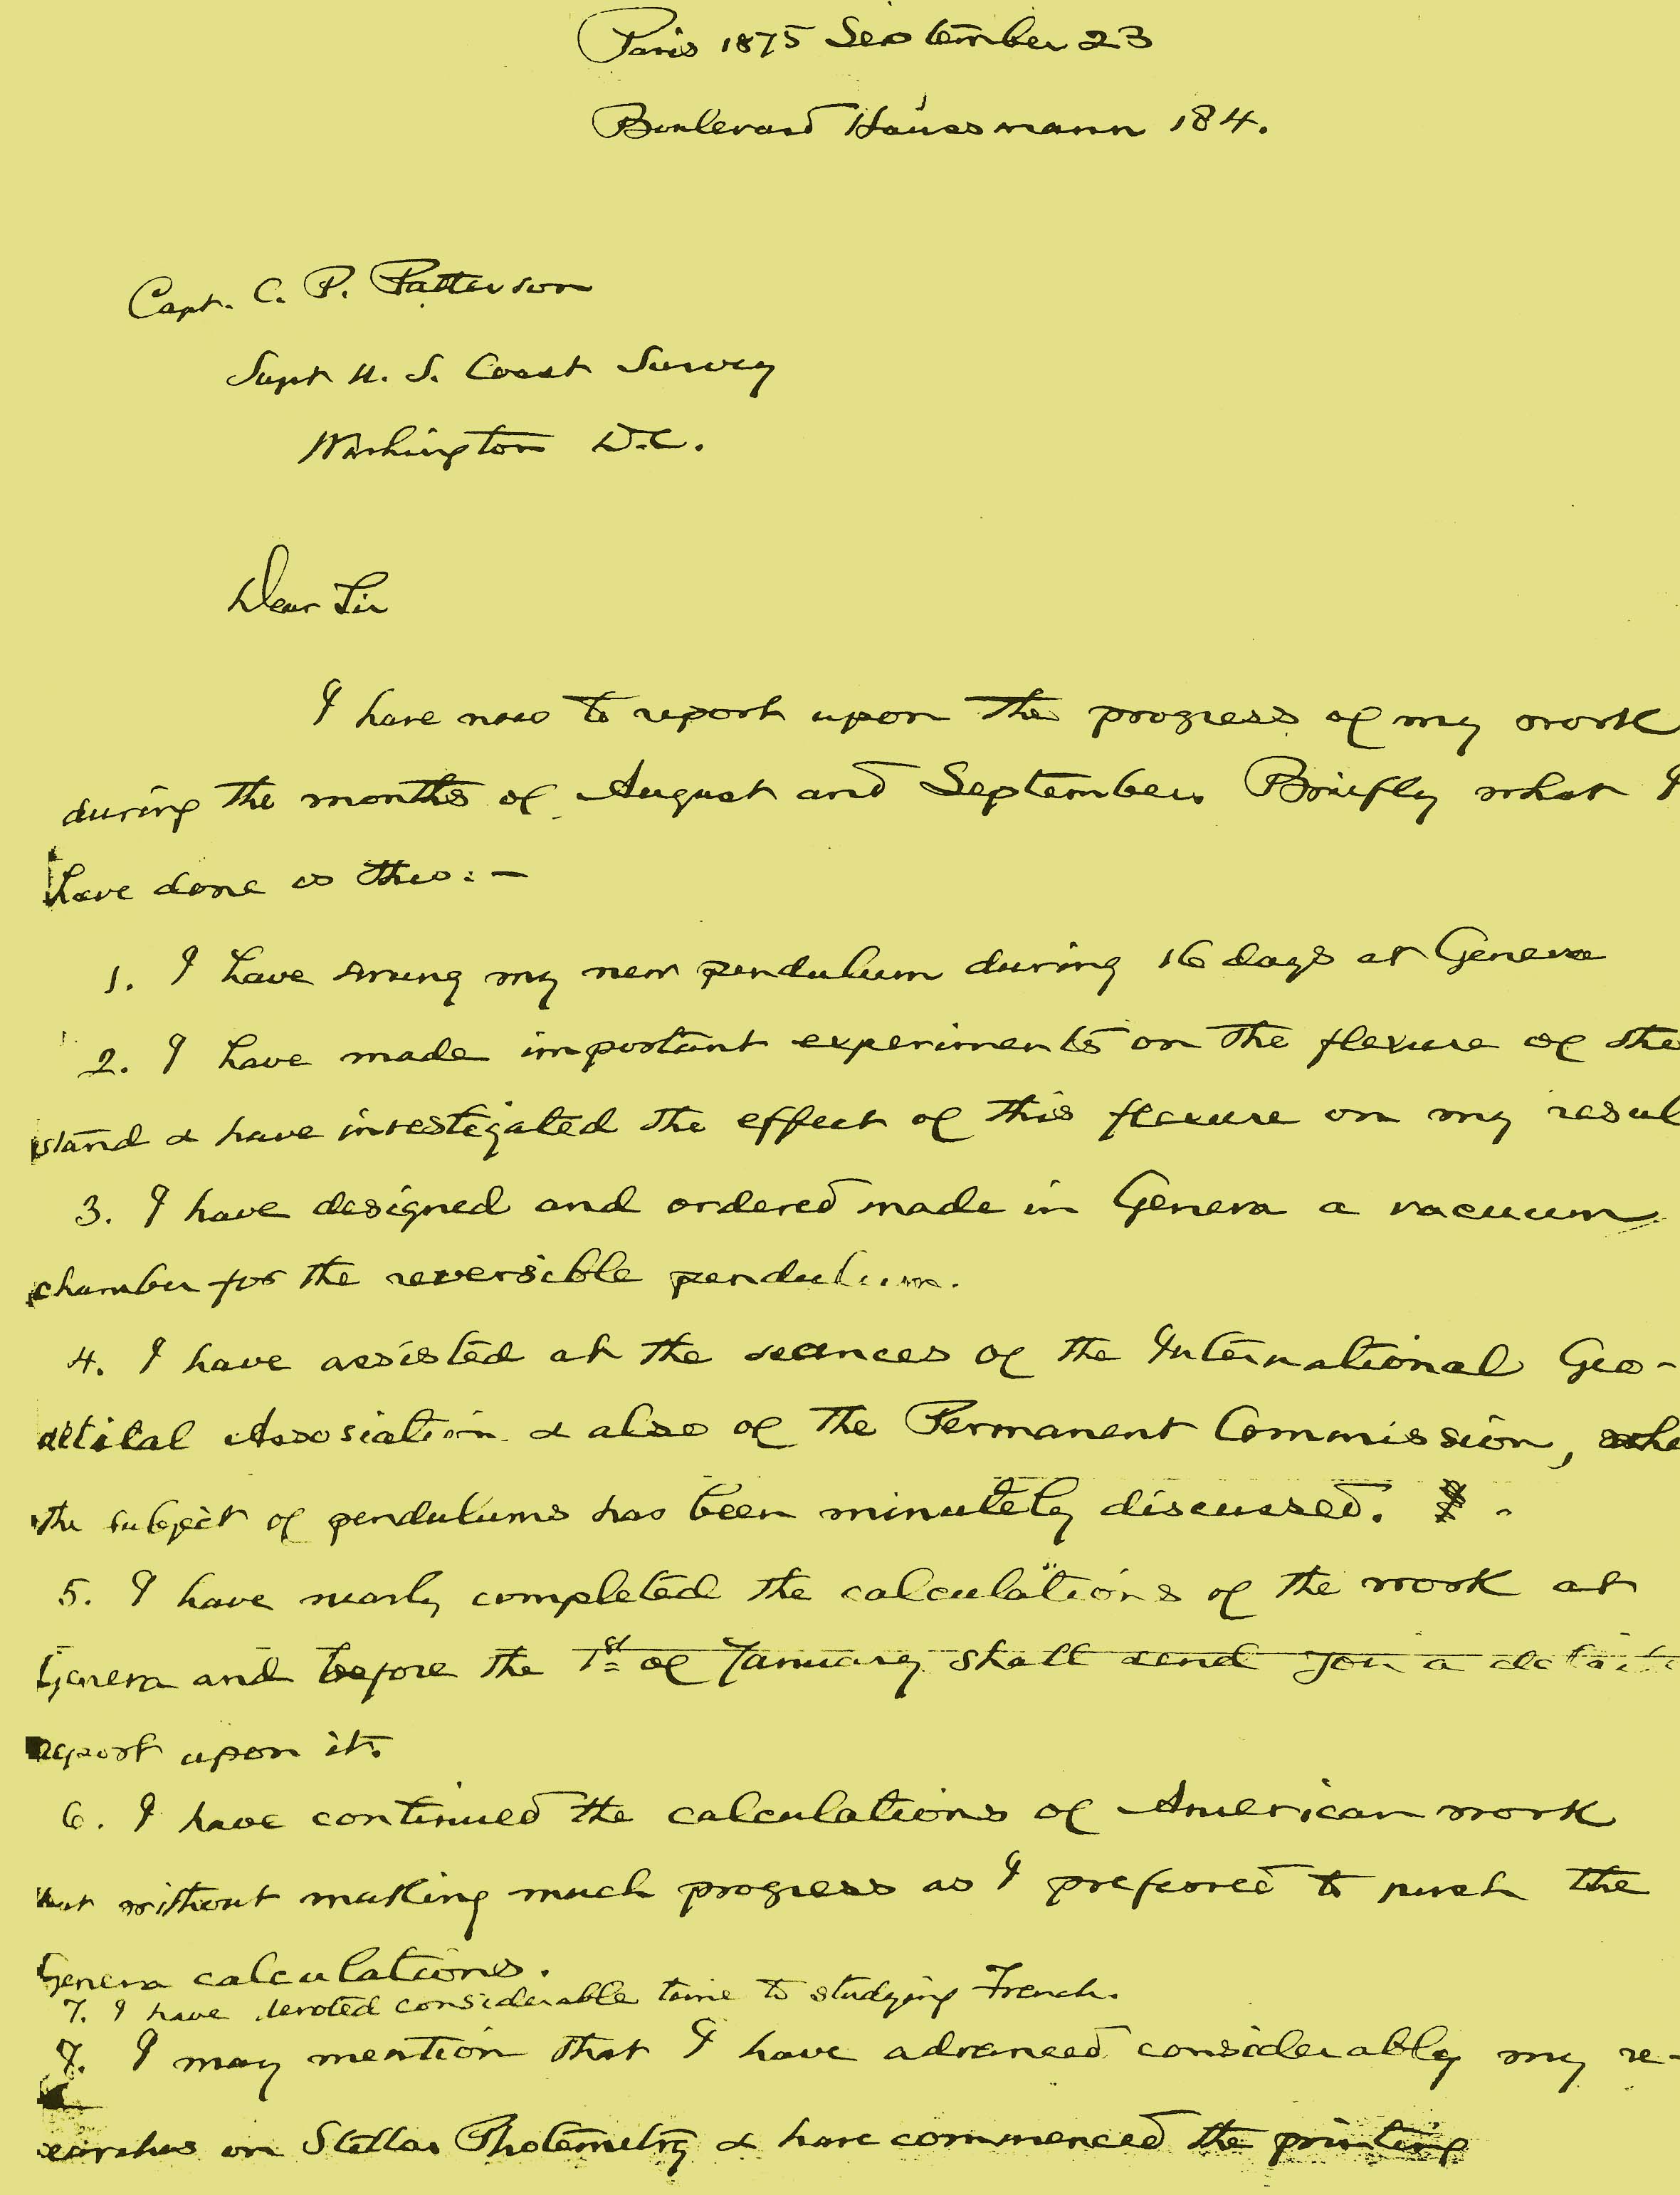 Paris 1875 September 23
Boulevard Haussmann 184.
Capt. C. P. Patterson
Supt U. S. Coast Survey
Washington D.C.
Dear Sir
I have now to report upon the progress of my work
during the months of August and September. Briefly what I
have done is this: —
1. I have swung my new pendulum during 16 days at Geneva
2. I have made important experiments on the flexure of the
stand & have investigated the effect of this flexure on my resul
3. I have designed and ordered made in Geneva a vacuum
chamber for the reversible pendulum.
4. I have assisted at the seances of the International Geo-
detical Association & also of the Permanent Commission, whe
the subject of pendulums has been minutely discussed.
5. I have nearly completed the calculations of the work at
Geneva and before the 1st of January shall send you a detaile
report upon it.
6. I have continued the calculations of American work
but without making much progress as I preferred to push the
Geneva calculations.
7. I have devoted considerable time to studying French.
I may mention that I have advanced considerably my re-
searches on Stellar Photometry & have commenced the printing